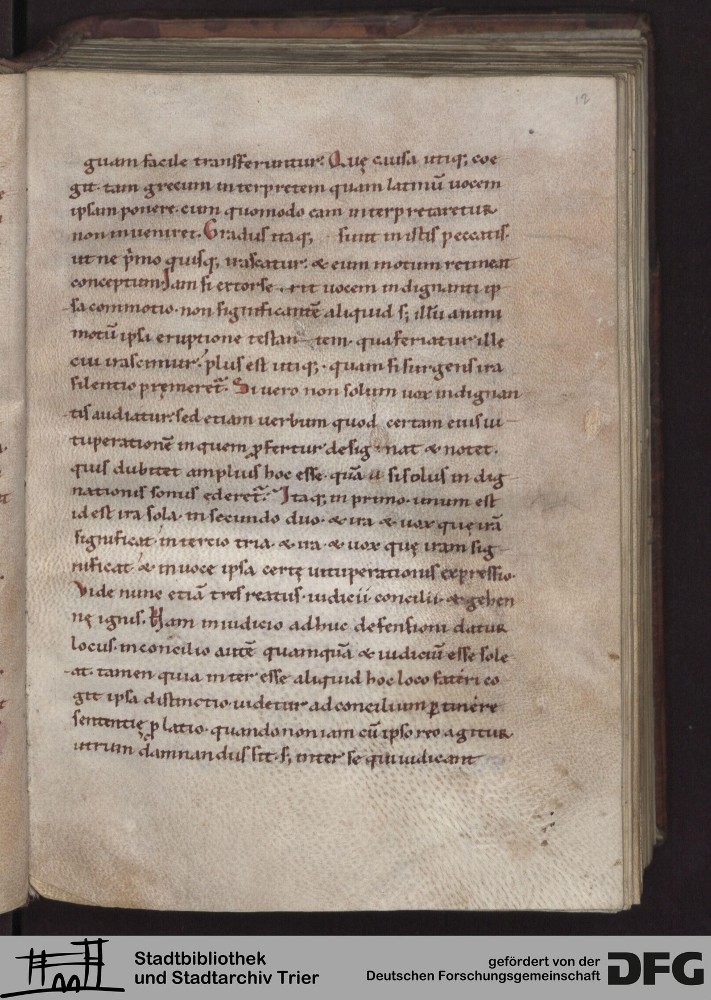 12
guam facile transferuntur. Quę causa utiq; coe
git. tam grecum interpretem quam latinū uocem
ipsam ponere. cum quomodo eam interpretaretur
non inueniret. Gradus itaq; sunt in istis peccatis.
ut ne p̄mo quisq; irascatur. & eum motum retineat
conceptum. Iam si extorse rit uocem indignanti ip
sa commotio. non significantē aliquid s; illū animi
motū ipsa eruptione testan tem. qua feriatur ille
cui irascimur. plus est utiq;. quam si surgens ira
silentio premeret̄. Si uero non solum uox indignan
tis audiatur. sed etiam uerbum quod certam eius ui
tuperationē in quem ꝓfertur desig nat & notet.
quis dubitet amplius hoc esse. quā si solus in dig
nationis sonus ederet̄. Itaq; in primo. unum est
id est ira sola. in secundo duo. & ira & uox quę irā
significat. in tercio tria. & ira & uox quę iram sig
nificat & in uoce ipsa certę uituperationis expressio.
Vide nunc etiā tres reatus. iudicii concilii. & gehen
nę ignis. Nam in iudicio adhuc defensioni datur
locus. in concilio autē quamquā & iudiciū esse sole
at. tamen quia inter esse aliquid hoc loco fateri co
git ipsa distinctio. uidetur ad concilium ꝑtinere
sententię ꝓlatio. quando non iam cū ipso reo agitur
utrum damnandus sit. s; inter se qui iudicant
Stadtbibliothek
und Stadtarchiv Trier
gefördert von der
Deutschen Forschungsgemeinschaft
DFG